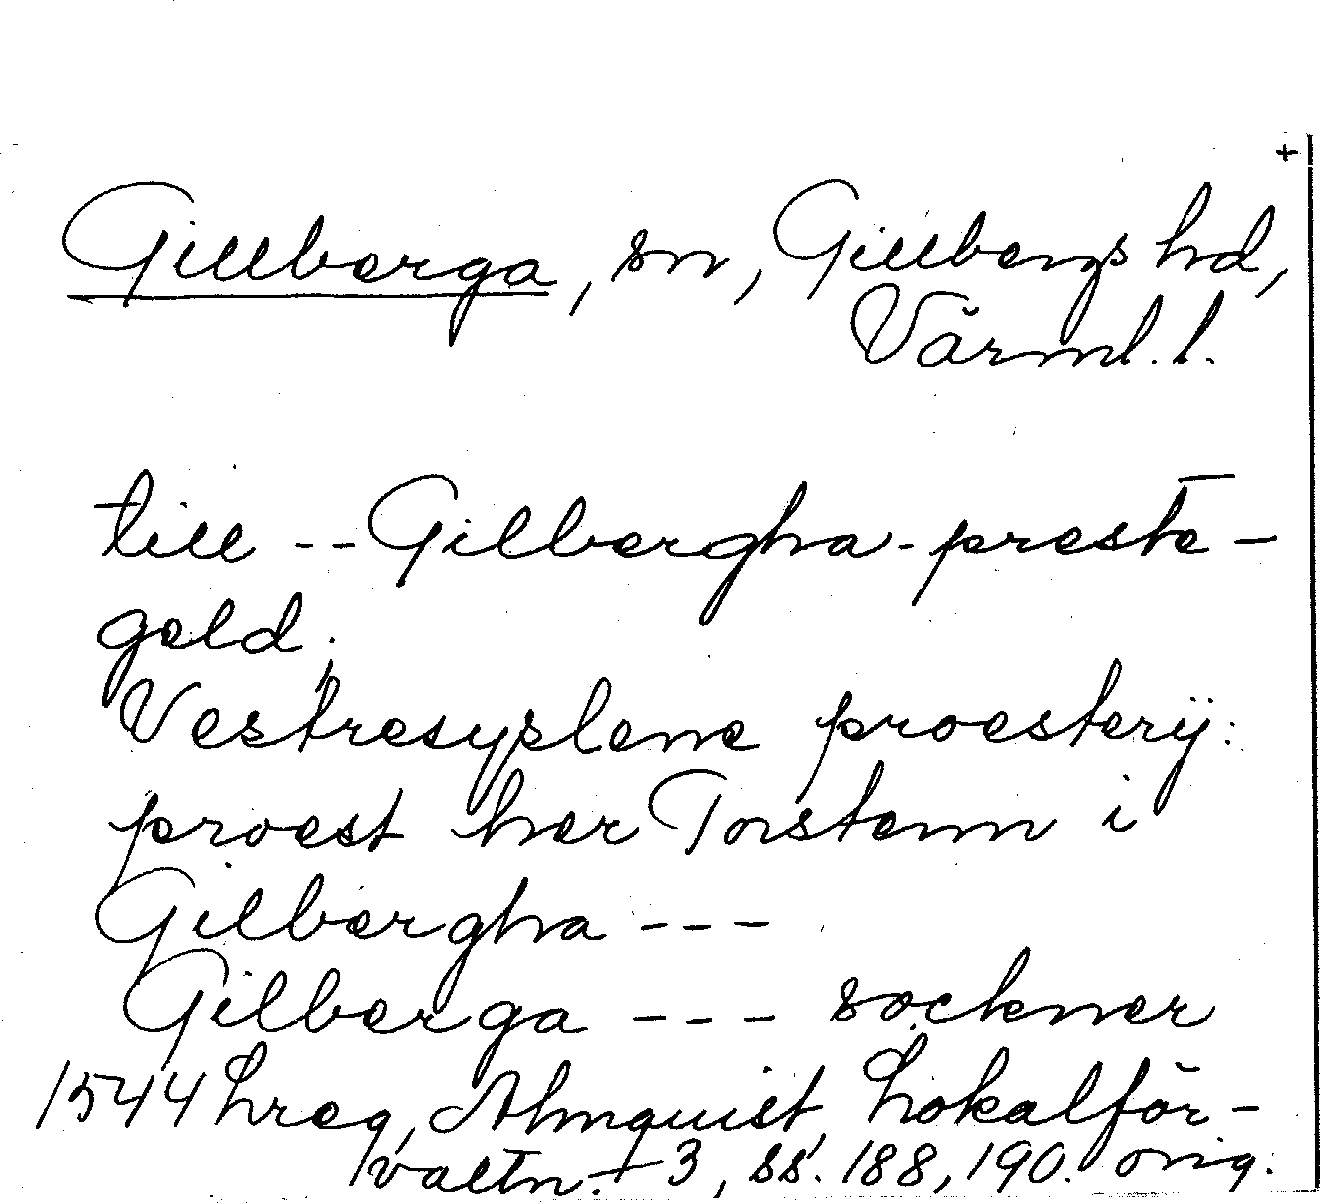 +
Gillberga, sn, Gillbergs hd,
Värml. l.
till -- Gilbergha-preste-
geld.
Vestresyslene proesterij:
proest her Torstenn i
Gilbergha ---
Gilberga --- sockner
1544 Lreg, Almquist, Lokalför-
valtn. + 3, ss. 188, 190. orig.